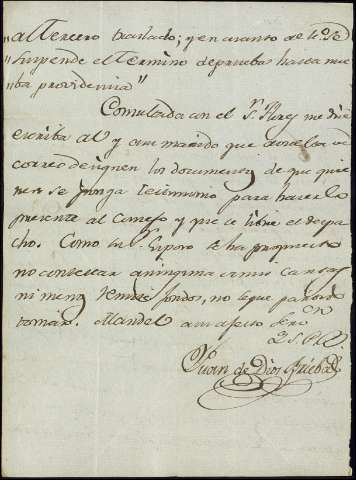 "al Tercero traslado; y en quanto de lo De
"Suspende el Termino de pruebas hasta nue
"ba providencia"
Consultada con el Sr. Flrez me dice
escriba al y a su marido que
correo designen los documentos de que quie
ren se ponga Testimonio para hacerlo
presente al Consejo y que se libre el despa
cho. Como su Esposo se ha propuesto
no contestar a ninguna de mis cartas
ni menos remitir fondos, no se que partido
tomar. Mande a su afecto serv
Juan de Dios